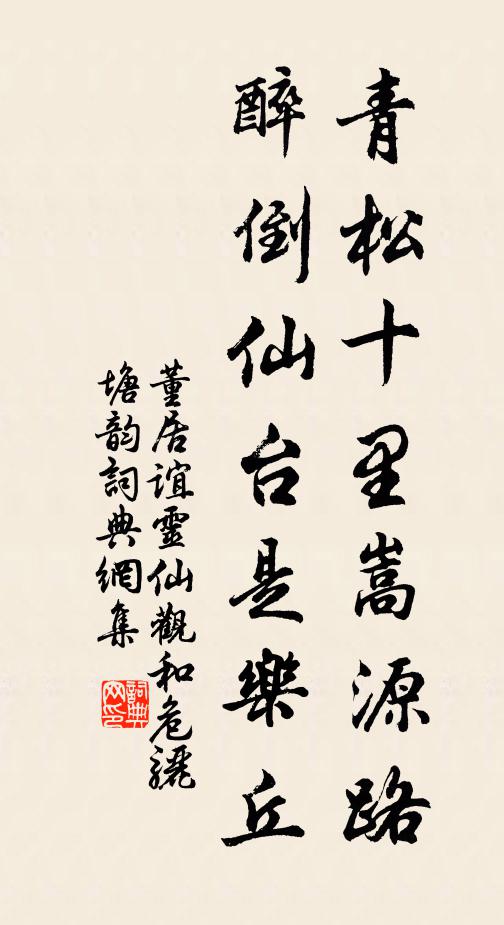 青松十里嵩源路
醉倒仙台是樂丘
董居誼靈仙觀和危驪
塘韵詞典網集
詞典网印